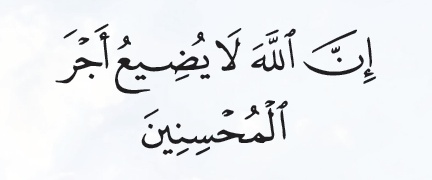 إِنَّ ٱللَّهَ لَا يُضِيعُ أَجْرَ
ٱلْمُحْسِنِينَ